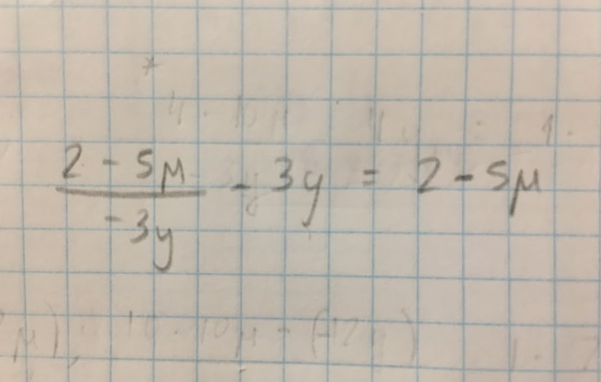 (2 - 5μ)/(-3y) - 3y = 2 - 5μ